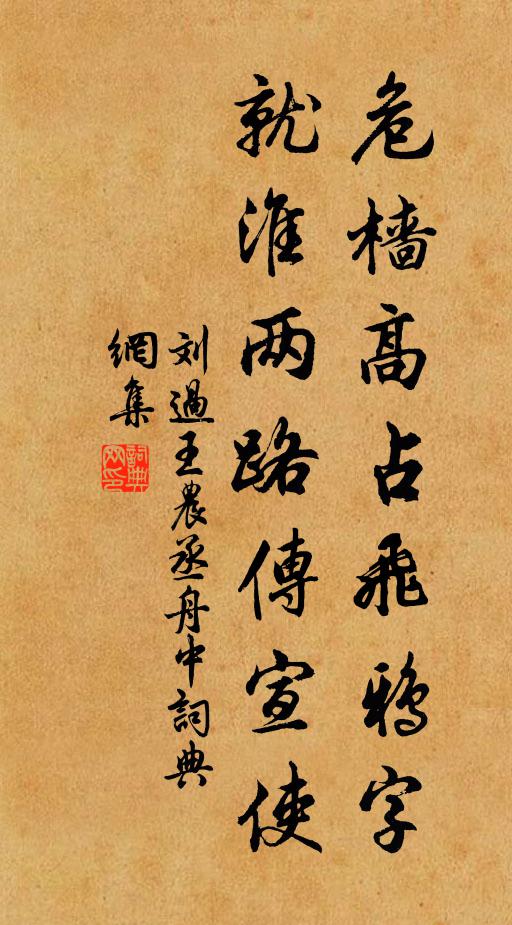 危樯高占飛鴉字
就淮两路傳宣使
刘過王農丞舟中詞典
網集
詞典网印